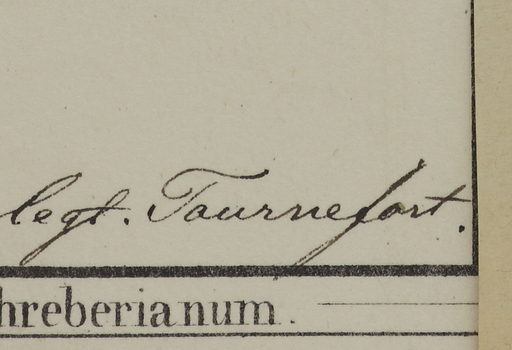 legt. Tournefort.
hreberianum.